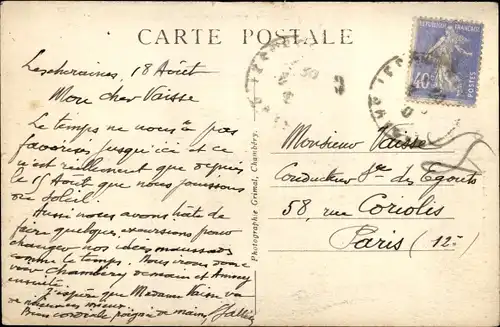 CARTE POSTALE
REPUBLIQUE FRANÇAISE
40c
POSTES
Lescheraines, 18 Août
Mon cher Vaisse
Le temps ne nous a pas
favorisés jusqu'ici et ce
n'est réellement que depuis
le 15 Août que nous jouissons
du soleil.
Aussi nous avons hâte de
faire quelques excursions pour
changer nos idées maussades
comme le temps. Nous irons donc
voir Chambéry demain et Annecy
ensuite.
J'espère que Madame Vaisse va
de mieux en mieux.
Bien cordiale poignée de main
Photographie Grimal, Chambéry.
Monsieur Vaisse
Conducteur Sce des Egouts
58, rue Coriolis
Paris (12e)